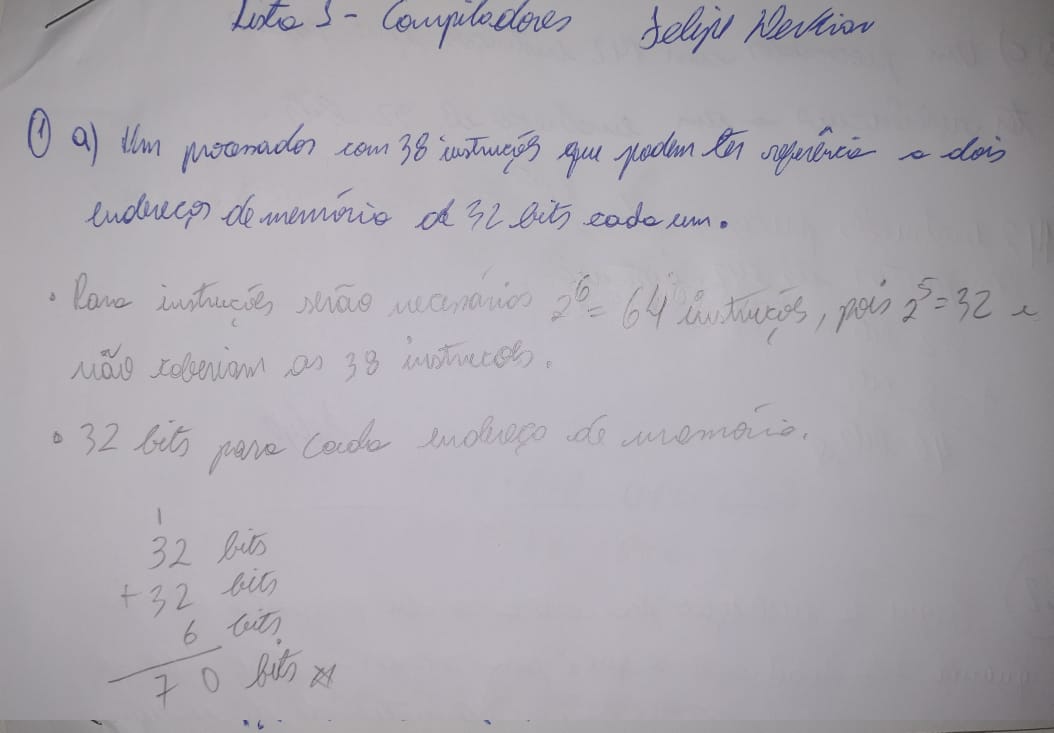 Lista 1 - Compiladores Felipe
① a) Um processador com 38 instruções que podem ter referência a dois
endereços de memória de 32 bits cada um.
• Para instruções serão necessários 2⁶ = 64 instruções, pois 2⁵ = 32 e
não caberiam as 38 instrucoes.
• 32 bits para cada endereço de memória.
1
32 bits
+ 32 bits
6 bits
70 bits